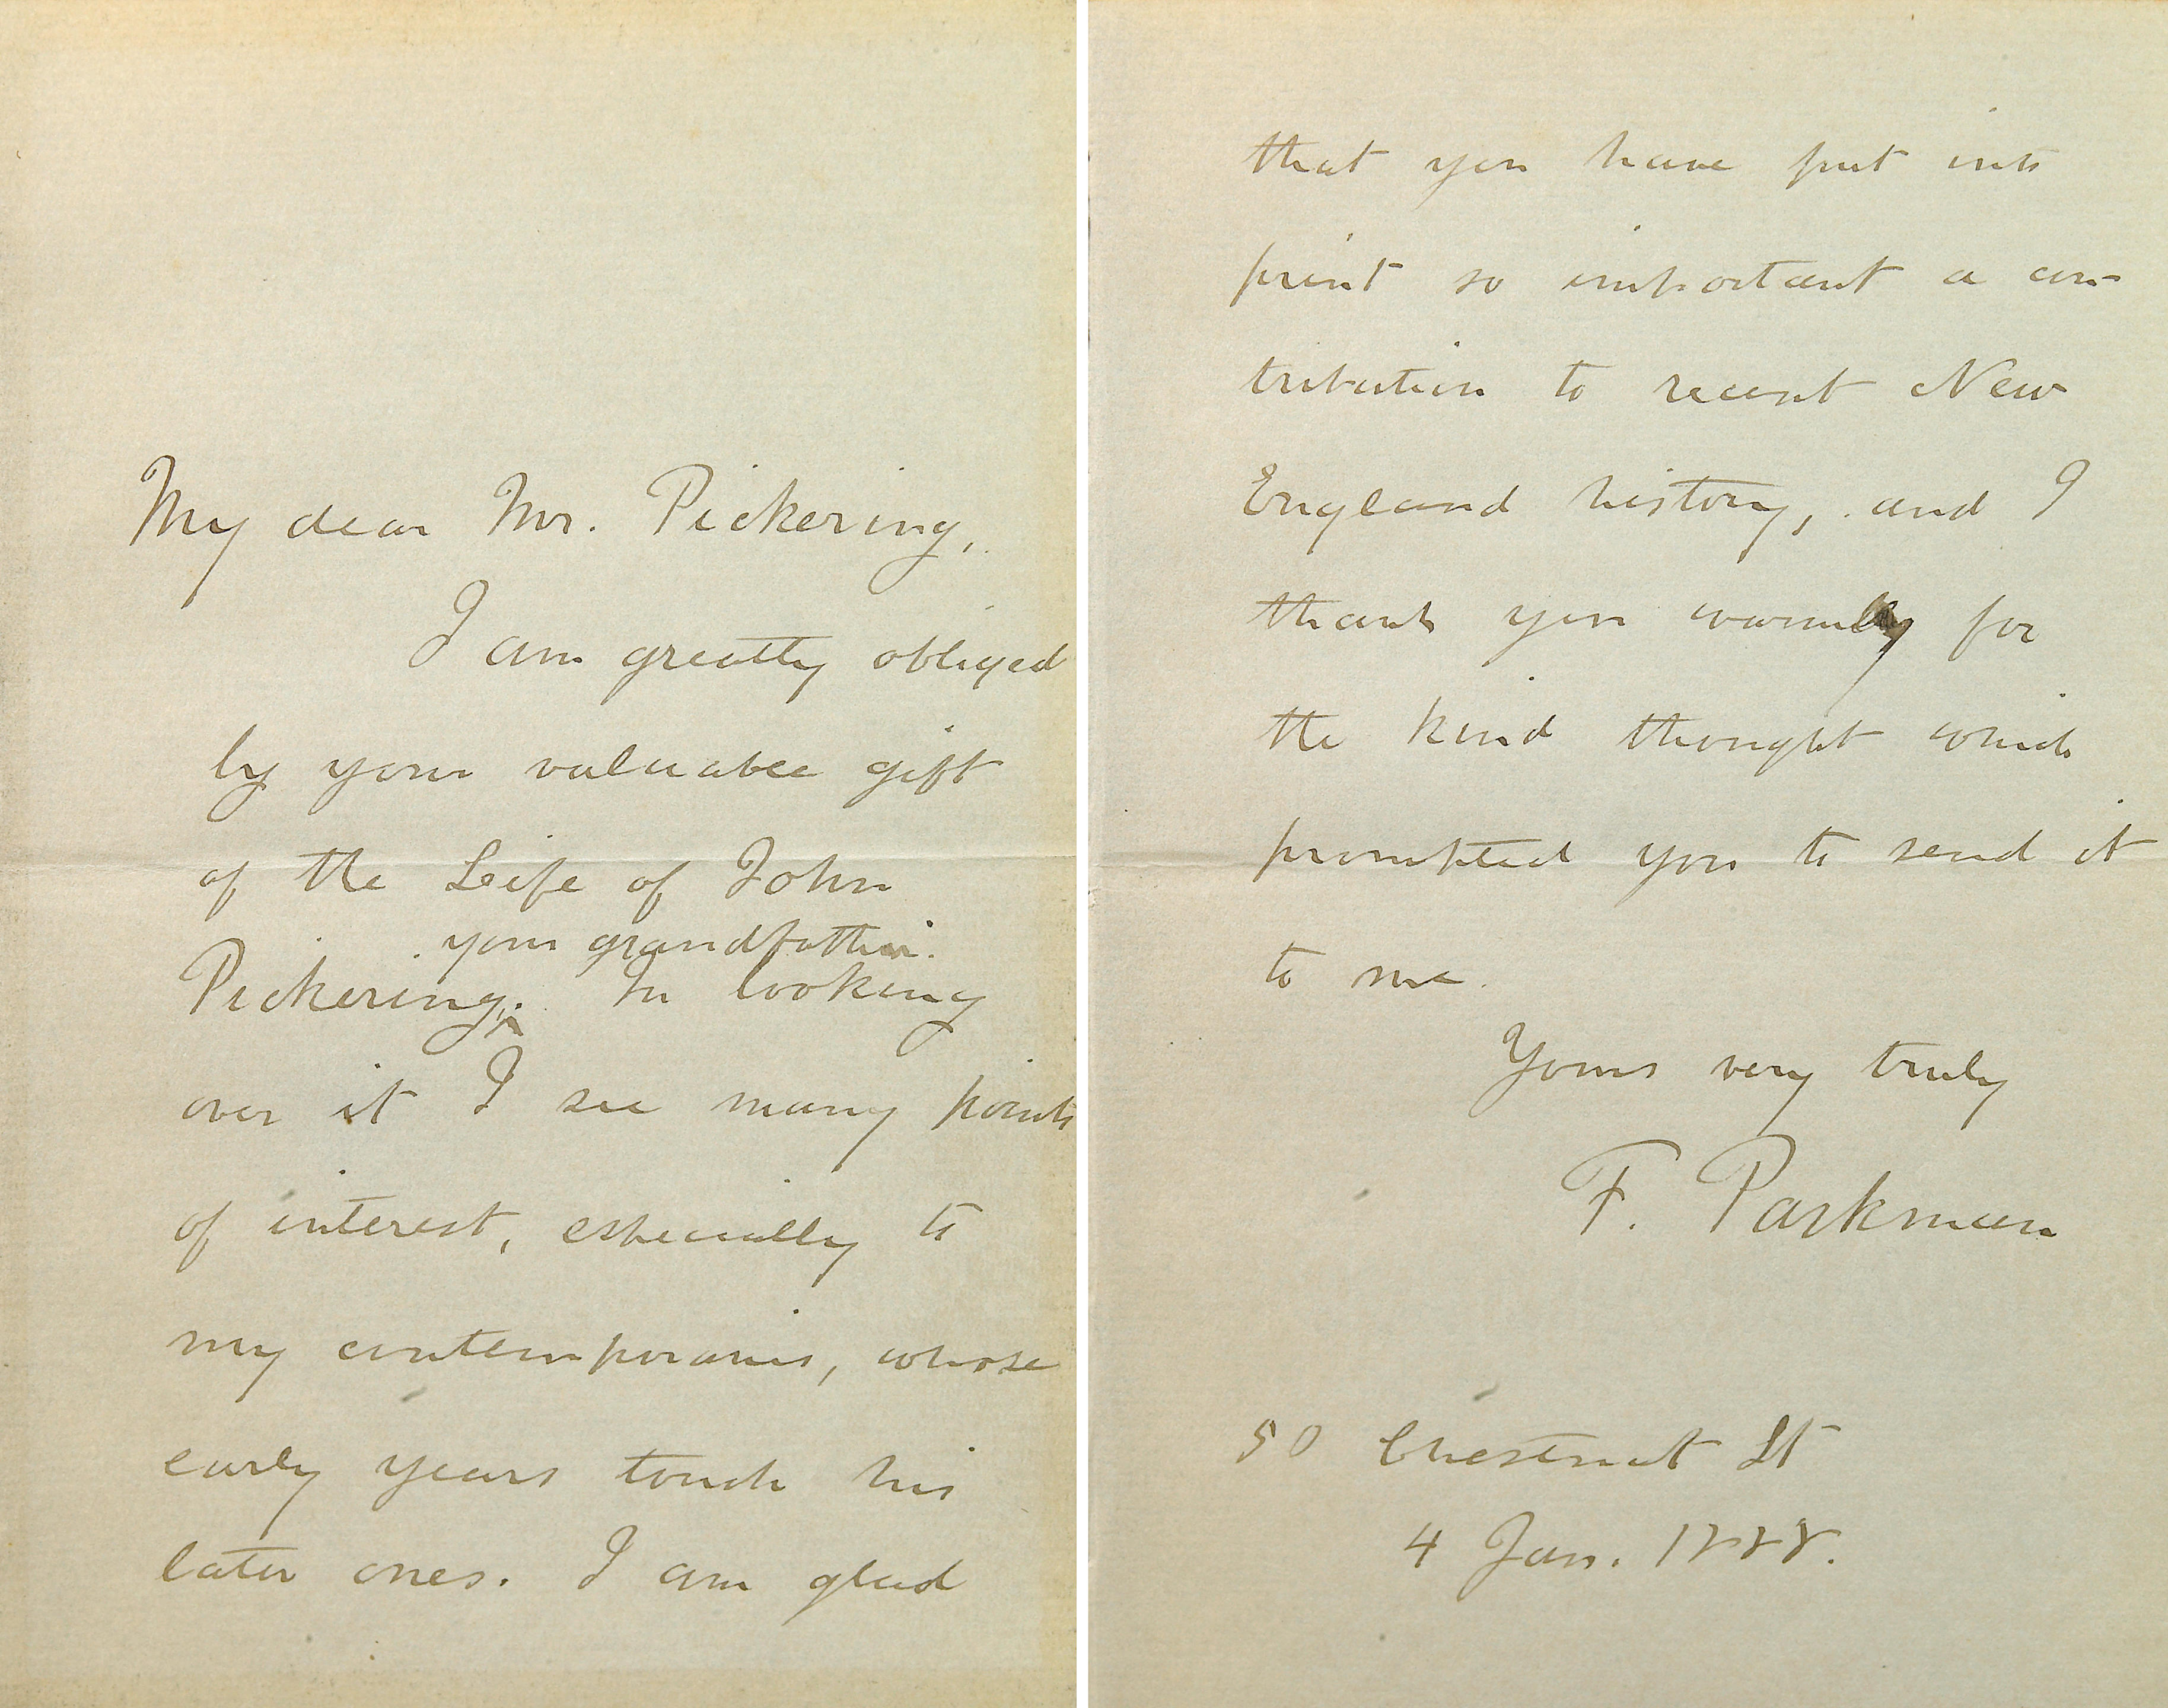 My dear Mr. Pickering,
I am greatly obliged
by your valuable gift
of the Life of John
your grandfather.
Pickering, In looking
over it I see many points
of interest, especially to
my contemporaries, whose
early years touch his
later ones. I am glad
that you have put into
print so important a con-
tribution to recent New
England history, and I
thank you warmly for
the kind thought which
prompted you to send it
to me.
Yours very truly
F. Parkman
50 Chestnut St
4 Jan. 1888.